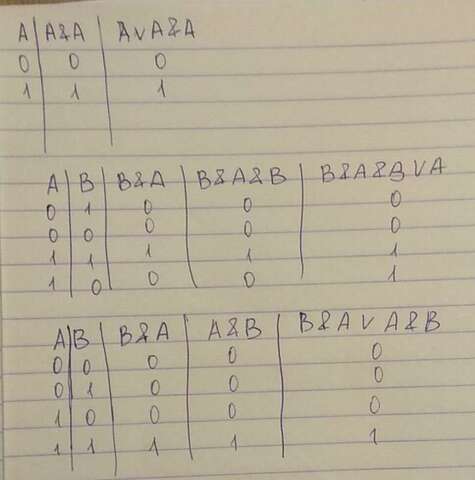 A A&A A∨A&A
0 0 0
1 1 1
A B B&A B&A&B B&A&B∨A
0 1 0 0 0
0 0 0 0 0
1 1 1 1 1
1 0 0 0 1
A B B&A A&B B&A∨A&B
0 0 0 0 0
0 1 0 0 0
1 0 0 0 0
1 1 1 1 1